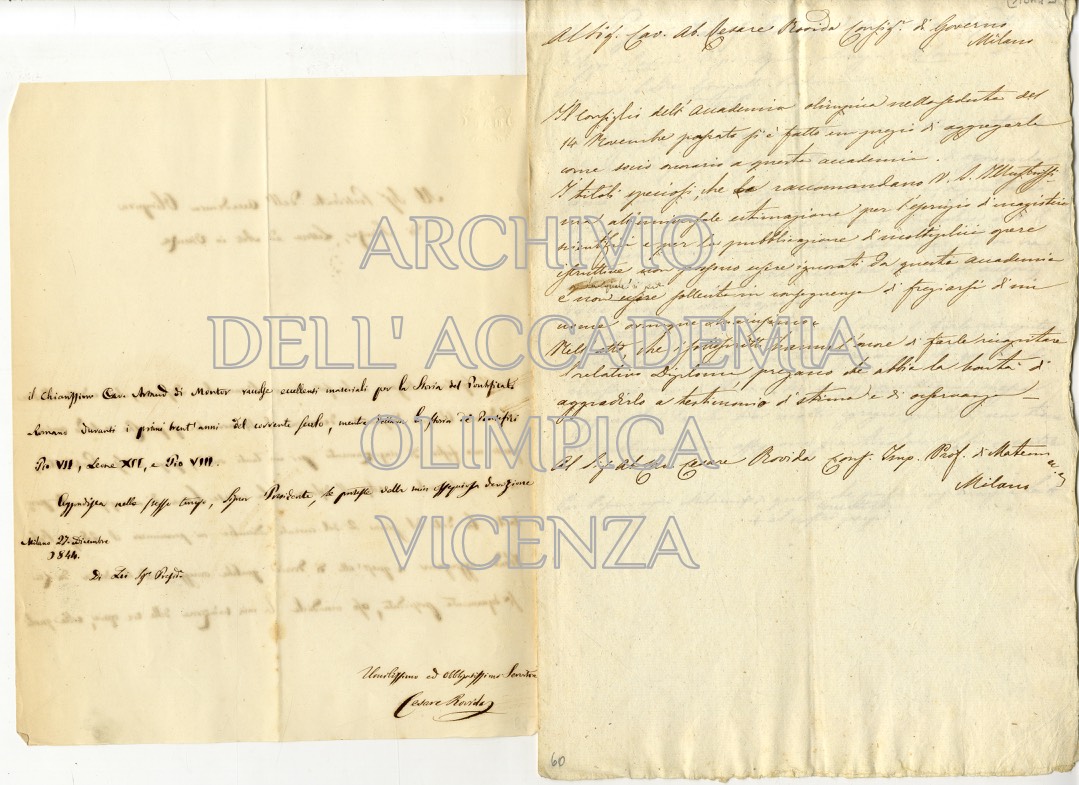 il Chiarissimo Cav. Artaud di Montor raccolse eccellenti materiali per la Storia del Pontificato
Romano durante i primi trent'anni del corrente secolo, mentre la Storia de' Pontefici
Pio VII, Leone XII, e Pio VIII.
Aggradisca nello stesso tempo, Signor Presidente, le proteste della mia ossequiosa devozione
Milano 27. Dicembre
1844.
Di Lei Sigr. Presid.
Umilissimo ed Obblgatissimo Servitore
Cesare Rovida
Al Sig. Cav. Ab. Cesare Rovida Consigr. di Governo
Milano
Il Consiglio dell'Accademia olimpica nella seduta del
14 Novembre passato si è fatto un pregio di aggregarla
come socio onorario a questa accademia.
I titoli speciosi, che la raccomandano V. S.
estimazione per l'esercizio di magistero
e per la pubblicazione di molteplici opere
istruttive non possono essere ignorati da questa accademia
e non essere sollecita in conseguenza di fregiarsi d'un
nome
Nell'atto, che i sottoscritti hanno l'onore di farle ricapitare
il relativo Diploma pregano che abbia la bontà di
aggradirlo a testimonio di stima e di osservanza —
Al Sig. Ab. Cav. Cesare Rovida Cons. Imp. Prof. di Matem
Milano
60
ARCHIVIO
DELL'ACCADEMIA
OLIMPICA
VICENZA